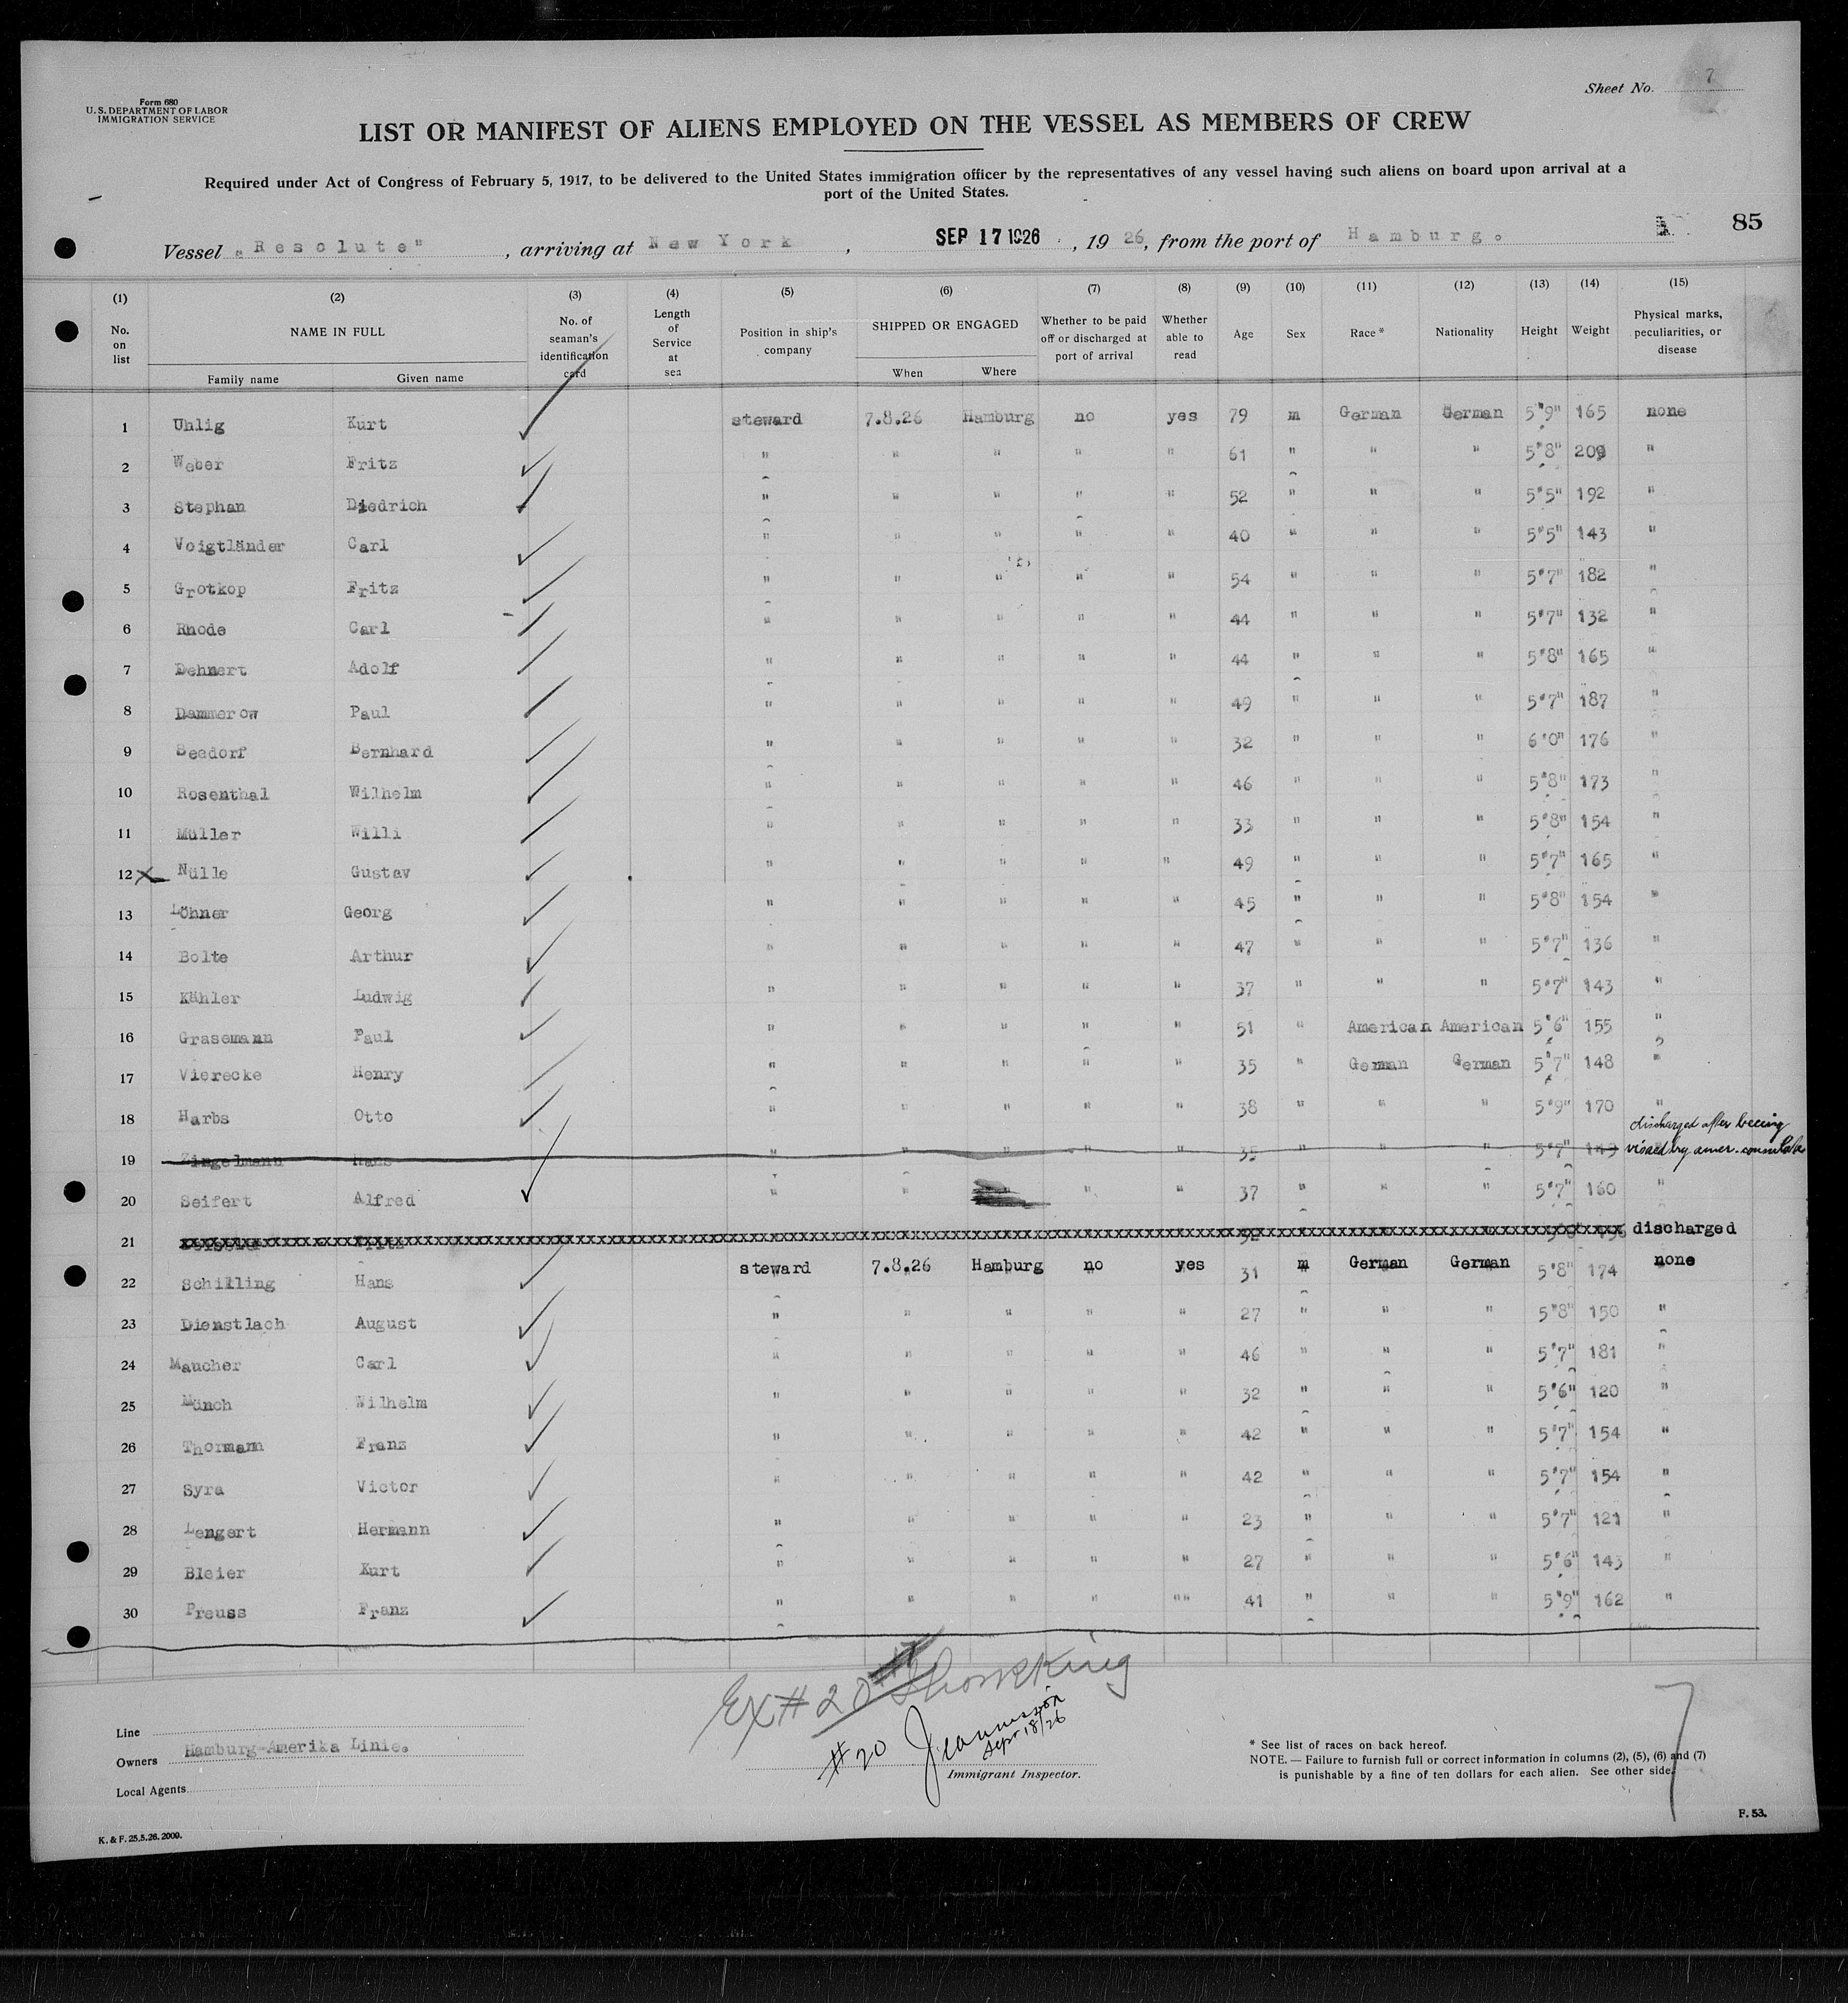 Form 680
U. S. DEPARTMENT OF LABOR
IMMIGRATION SERVICE
Sheet No. 7
LIST OR MANIFEST OF ALIENS EMPLOYED ON THE VESSEL AS MEMBERS OF CREW
Required under Act of Congress of February 5, 1917, to be delivered to the United States immigration officer by the representatives of any vessel having such aliens on board upon arrival at a
port of the United States.
85
Vessel „Resolute", arriving at New York, SEP 17 1926, 1926, from the port of Hamburg.
(1) (2) (3) (4) (5) (6) (7) (8) (9) (10) (11) (12) (13) (14) (15)
No. on list NAME IN FULL Family name Given name No. of seaman's identification card Length of Service at sea Position in ship's company SHIPPED OR ENGAGED When Where Whether to be paid off or discharged at port of arrival Whether able to read Age Sex Race * Nationality Height Weight Physical marks, peculiarities, or disease
1 Uhlig Kurt steward 7.8.26 Hamburg no yes 79 m German German 5'9" 165 none
2 Weber Fritz " " " " " 61 " " " 5'8" 209 "
3 Stephan Diedrich " " " " " 52 " " " 5'5" 192 "
4 Voigtländer Carl " " " " " 40 " " " 5'5" 143 "
5 Grotkop Fritz " " " " " 54 " " " 5'7" 182 "
6 Rhode Carl " " " " " 44 " " " 5'7" 132 "
7 Dehnert Adolf " " " " " 44 " " " 5'8" 165 "
8 Dammerow Paul " " " " " 49 " " " 5'7" 187 "
9 Seedorf Bernhard " " " " " 32 " " " 6'0" 176 "
10 Rosenthal Wilhelm " " " " " 46 " " " 5'8" 173 "
11 Müller Willi " " " " " 33 " " " 5'8" 154 "
12 x Nülle Gustav " " " " " 49 " " " 5'7" 165 "
13 Löhner Georg " " " " " 45 " " " 5'8" 154 "
14 Bolte Arthur " " " " " 47 " " " 5'7" 136 "
15 Kähler Ludwig " " " " " 37 " " " 5'7" 143 "
16 Grasemann Paul " " " " " 51 " American American 5'6" 155 "
17 Vierecke Henry " " " " " 35 " German German 5'7" 148 "
18 Harbs Otto " " " " " 38 " " " 5'9" 170 "
discharged after beeing
19 Zingelmann Hans " " " " " 35 " " " 5'7" 143 visaed by amer. consulate
20 Seifert Alfred " " " " 37 " " " 5'7" 160 "
21 Fritz 32 discharged
22 Schilling Hans steward 7.8.26 Hamburg no yes 31 m German German 5'8" 174 none
23 Dienstlach August " " " " " 27 " " " 5'8" 150 "
24 Maucher Carl " " " " " 46 " " " 5'7" 181 "
25 Münch Wilhelm " " " " " 32 " " " 5'6" 120 "
26 Thormann Franz " " " " " 42 " " " 5'7" 154 "
27 Syra Victor " " " " " 42 " " " 5'7" 154 "
28 Lengert Hermann " " " " " 23 " " " 5'7" 121 "
29 Bleier Kurt " " " " " 27 " " " 5'6" 143 "
30 Preuss Franz " " " " "" 41 " " " 5'9" 162 "
Ex # 20
#20
Sept 18/26
Line
Owners Hamburg-Amerika Linie.
Local Agents
Immigrant Inspector.
* See list of races on back hereof.
NOTE. — Failure to furnish full or correct information in columns (2), (5), (6) and (7)
is punishable by a fine of ten dollars for each alien. See other side.
7
K. & F. 25.5.26. 2000.
F. 53.